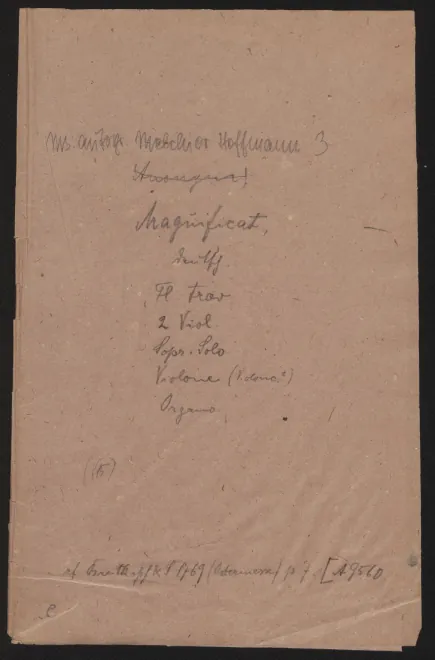 Ms. autogr. Melchior Hoffmann 3
Anonymus!
Magnificat,
deutsch.
Fl trav
2 Viol
Sopr. Solo
Violone (Violonc?)
Organo
(15)
cf 1769 (Ostermesse) p 7. [A 9560